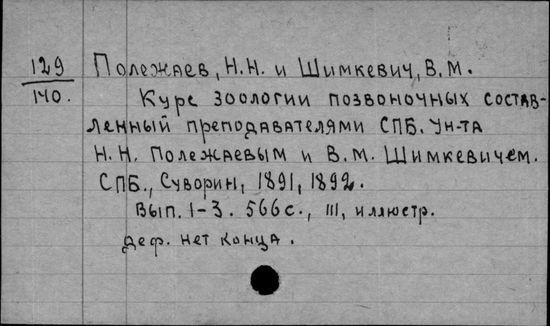 129 Полежаев, Н.Н. и Шимкевич, В.М.
140. Курс зоологии позвоночных состав-
ленный преподавателями СПБ. Ун-та
Н.Н. Полежаевым и В.М. Шимкевичем.
СПБ., Суворин, 1891, 1892.
Вып. 1-3. 566 с., III, иллюстр.
деф. нет конца.